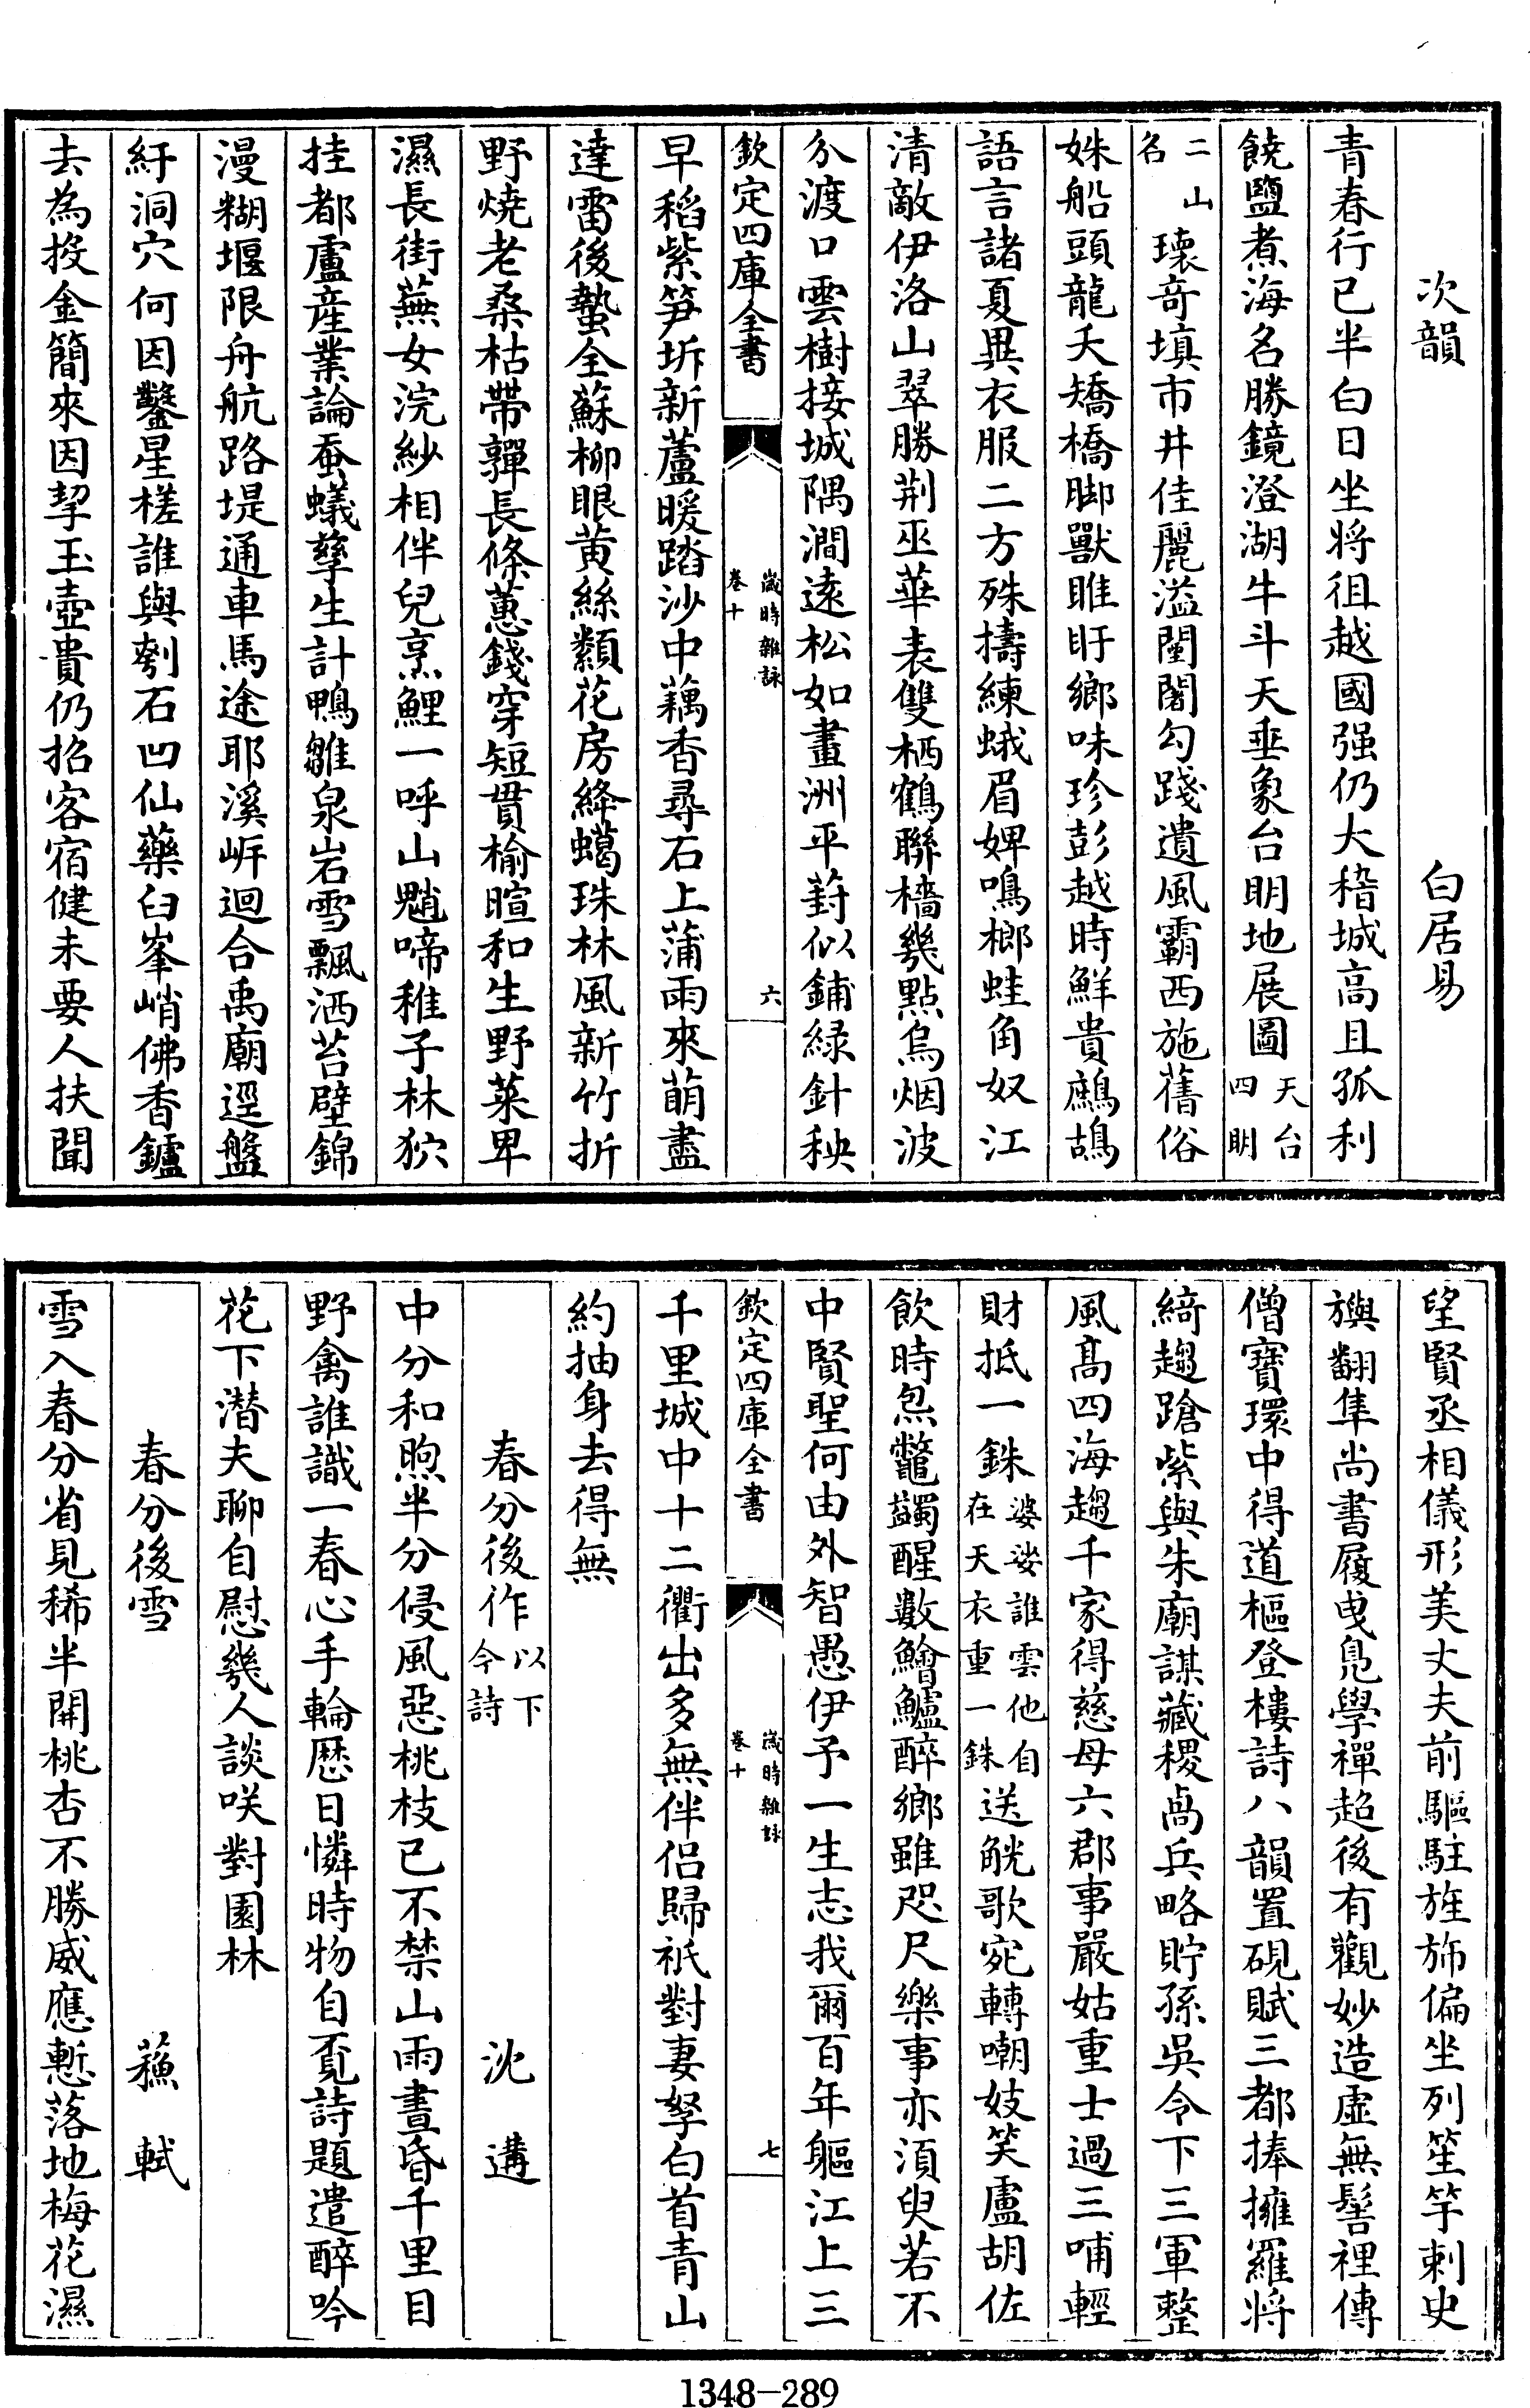 次韻 白居易
青春行已半白日坐将徂越國强仍大稽城高且孤利
饒鹽煮海名勝鏡澄湖牛斗天垂象台明地展圖天台四明
二山名瓌竒填市井佳麗溢闉闍勾踐遺風霸西施舊俗
姝船頭龍夭矯橋脚獸睢盱鄉味珍彭越時鮮貴鷓鴣
語言諸夏異衣服二方殊擣練蛾眉婢鳴榔蛙角奴江
清敵伊洛山翠勝荆巫華表雙栖鶴聯檣幾點烏烟波
分渡口雲樹接城隅澗遠松如畫洲平葑似鋪緑針秧
欽定四庫全書 歲時雜詠卷十 六
早稻紫笋坼新蘆暖踏沙中藕香尋石上蒲雨來萌盡
達雷後蟄全蘇柳眼黄絲纇花房絳蠟珠林風新竹折
野燒老桑枯帶嚲長條蕙錢穿短貫榆暄和生野菜卑
濕長街蕪女浣紗相伴兒烹鯉一呼山魈啼稚子林狖
挂都盧産業論蚕蟻孳生計鴨雛泉岩雪飄洒苔壁錦
漫糊堰限舟航路堤通車馬途耶溪岸迴合禹廟逕盤
紆洞穴何因鑿星槎誰與刳石凹仙藥臼峯峭佛香鑪
去為投金簡來因挈玉壺貴仍招客宿健未要人扶聞
望賢丞相儀形美丈夫前驅駐旌旆偏坐列笙竽刺史
旟翻隼尚書履曳鳬學禪超後有觀妙造虚無髻裡傳
僧寶環中得道樞登樓詩八韻置硯賦三都捧擁羅将
綺趨蹌紫與朱廟謀藏稷卨兵略貯孫吳令下三軍整
風髙四海趨千家得慈母六郡事嚴姑重士過三哺輕
財抵一銖婆娑誰雲他自在天衣重一銖送觥歌宛轉嘲妓笑盧胡佐
飲時炰鼈蠲醒數鱠鱸醉鄉雖咫尺樂事亦須臾若不
中賢聖何由外智愚伊予一生志我爾百年軀江上三
欽定四庫全書 歲時雜詠卷十 七
千里城中十二衢出多無伴侣歸祇對妻孥白首青山
約抽身去得無
春分後作以下今詩 沈遘
中分和煦半分侵風惡桃枝已不禁山雨晝昏千里目
野禽誰識一春心手輪歴日憐時物自覔詩題遣醉吟
花下潜夫聊自慰幾人談咲對園林
春分後雪 蘓軾
雪入春分省見稀半開桃杏不勝威應慙落地梅花濕
1348-289